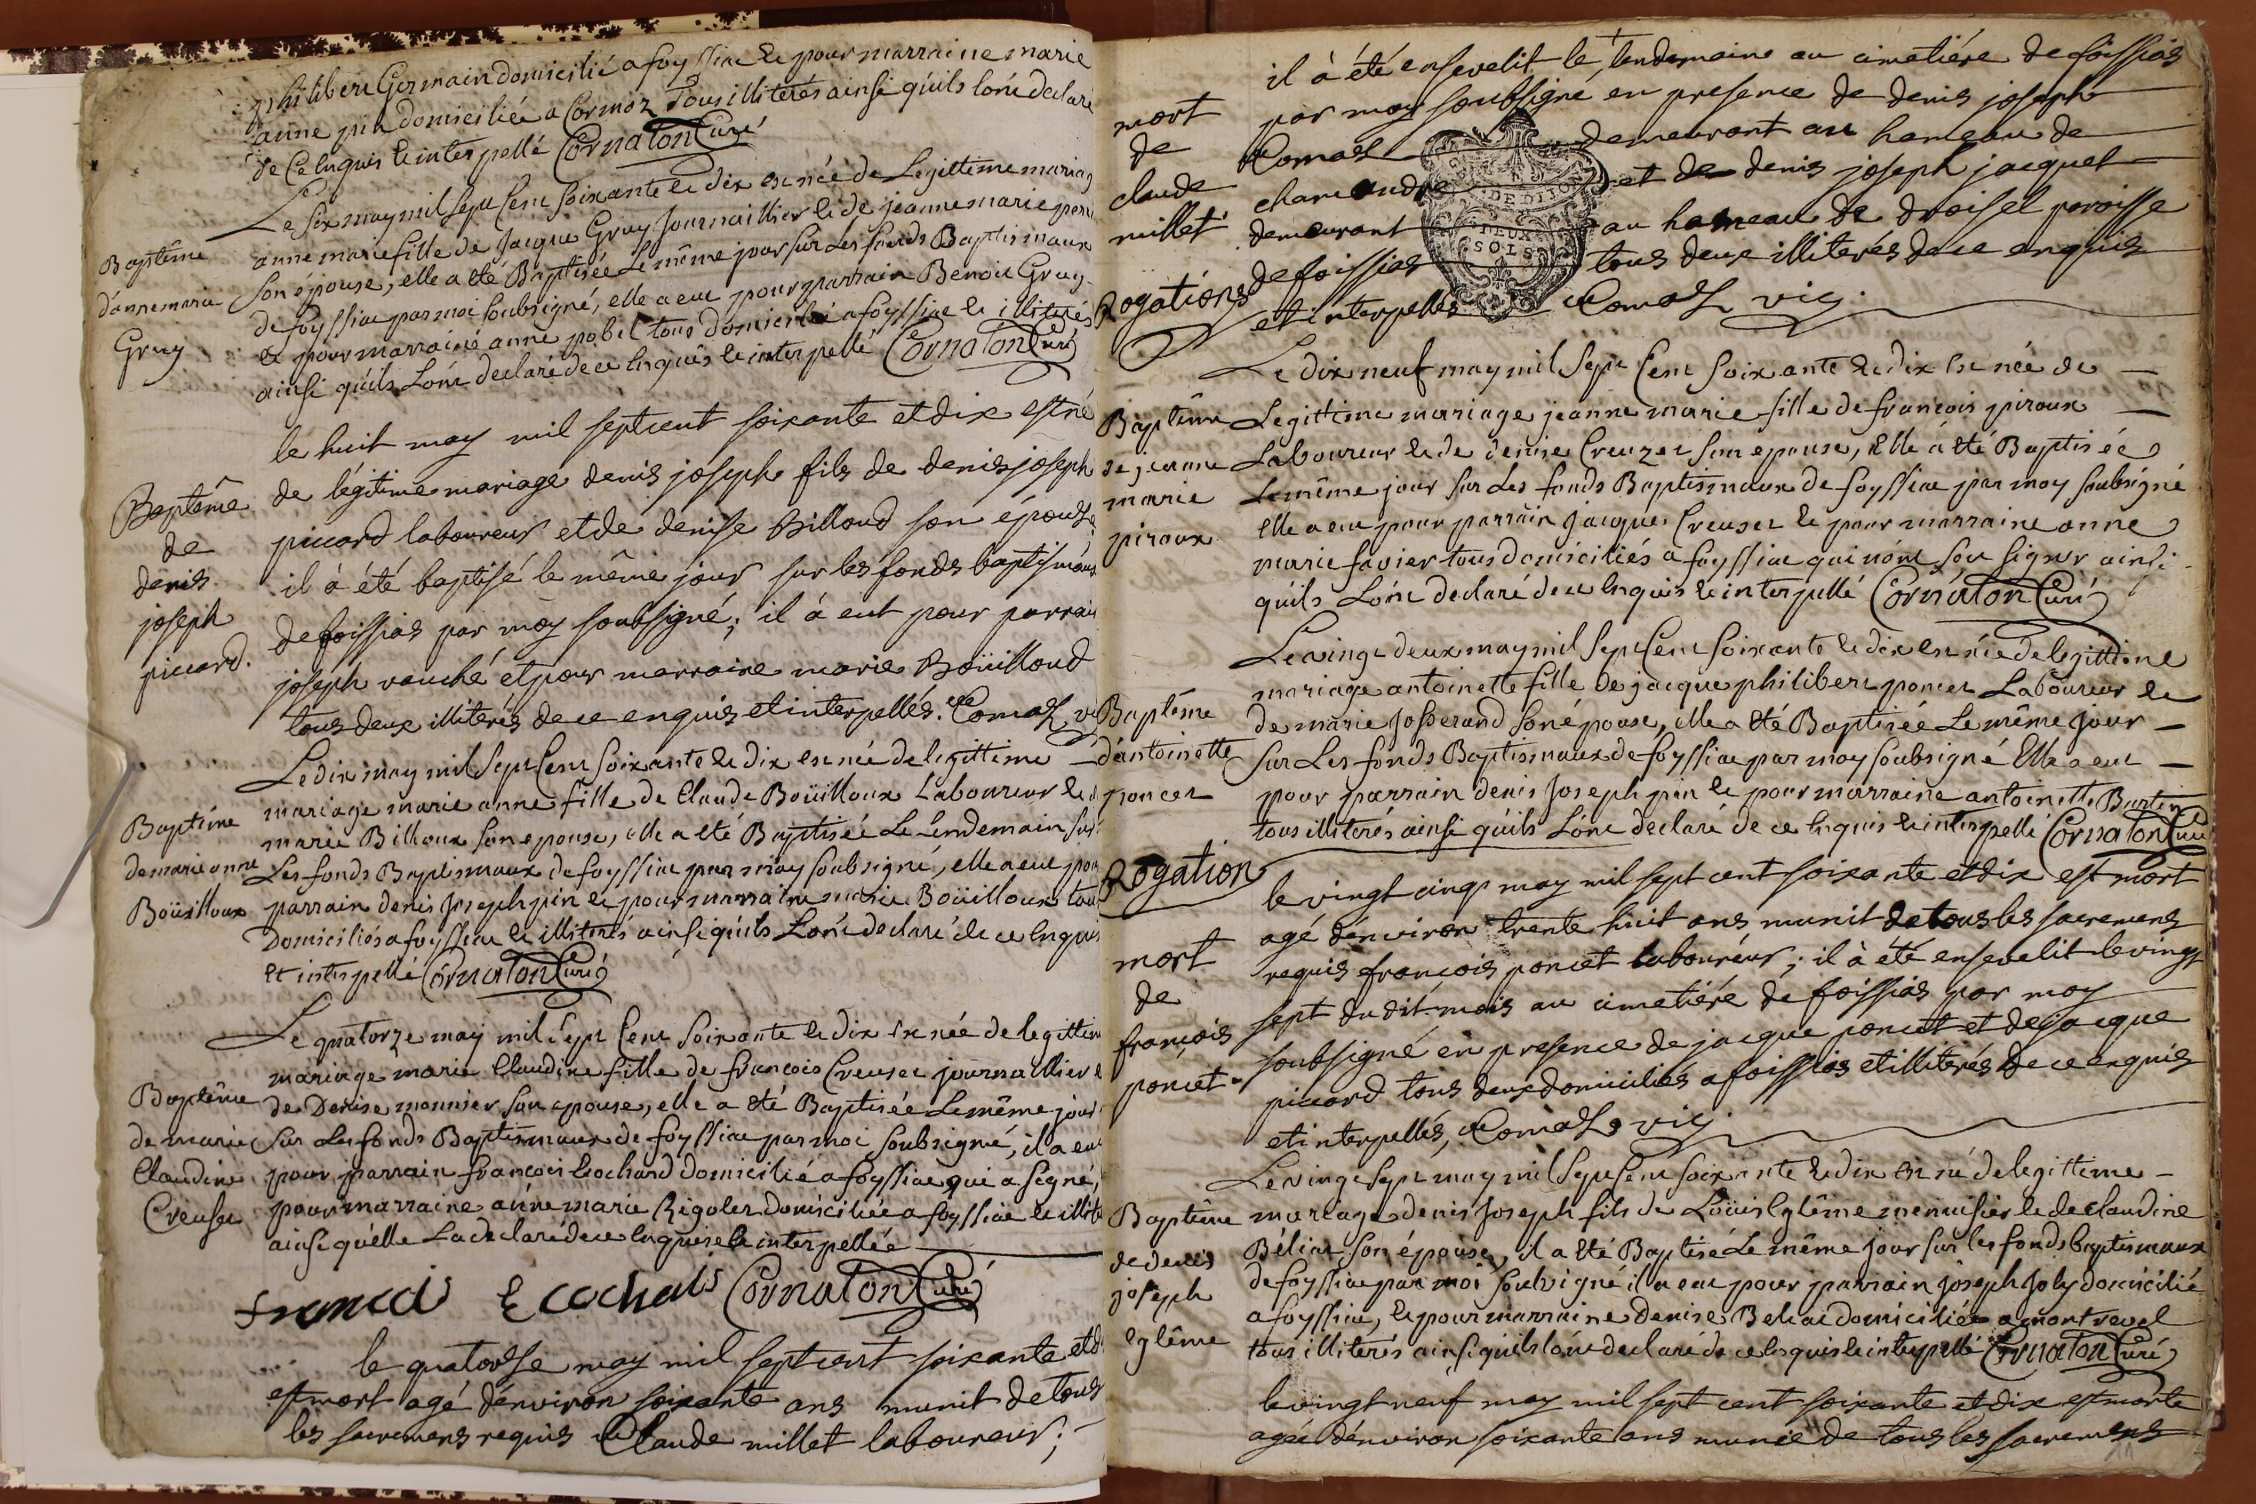 philibert Germain domicilié a foyssiac et pour marraine marie
anne pin domiciliée a Cormoz Tous illiterés ainsi qu'ils l'ont declaré
de ce Enquis et interpellé Cornaton Curé
Le six may mil sept Cent soixante et dix est née de Legittime mariag
Baptême
d'anne marie
Gruy
anne marie fille de Jacque Gruy Journaillier et de jeanne marie
son épouse, elle a été Baptisée Le même jour sur Les fonds Baptismaux
de foyssiac par moi soubsigné, elle a eut pour parrain Benoit Gruy
et pour marraine anne pobel tous domiciliés a foyssiac et illiterés
ainsi qu'ils L'ont declaré de ce Enquis et interpellé Cornaton Curé
le huit may mil sept cent soixante et dix est né
Baptême
de
denis
joseph
piccard.
de légitime mariage denis joseph fils de denis joseph
piccard laboureur et de denise Billoud son épouse
il à été baptisé le même jour sur les fonds baptismaux
de foissias par moy soubsigné; il à eut pour parrain
joseph vauché et pour marraine marie Boüilloud
tous deux illiterés de ce enquis et interpellés.
Le dix may mil sept Cent soixante et dix est née de legittime
Baptême
de marie anne
Boüilloux
mariage marie anne fille de Claude Boüilloux Laboureur et d
marie Billoux son epouse, elle a été Baptisée Le Lendemain sur
Les fonds Baptismaux de foyssiac par moy soubsigné, elle a eut pour
parrain denis Joseph pin et pour marraine marie Boüilloux tous
Domiciliés a foyssiac et illiterés ainsi qu'ils L'ont declaré de ce Enquis
Et interpellé Cornaton Curé
Le quatorze may mil sept Cent soixante et dix est née de legittim
Baptême
de marie
Claudine
Creuset
mariage marie Claudine fille de francois Creuset journallier e
de Denise monnier son epouse, elle a été Baptisée Le même jour
sur Les fonds Baptismaux de foyssiac par moi soubsigné, il a eut
pour parrain francois Ecochard domicilié a foyssiac qui a signé,
pour marraine anne marie Rigolet domiciliée a foyssiac et illite
ainsi qu'elle L'a declaré de ce Enquise et interpellée
francoi Ecochard Cornaton Curé
le quatorse may mil sept cent soixante et d
est mort agé d'environ soixante ans munit de tous
les sacremens requis Claude millet laboureur;
il à été ensevelit le lendemaine au cimetiére de foissias
mort
de
claude
millet
par moy soubsigné en presence de denis joseph
Comas demeurant au hameau de
chareaudre et de denis joseph jacquet
demeurant au hameau de Droisel paroisse
de foissias tous deux illiteres de ce enquis
Rogations
et interpellés vic.
DEUX
SOLS
Le dix neuf may mil sept Cent soixante et dix Est née de
Baptême
de jeanne
marie
piroux
Legittime mariage jeanne marie fille de francois piroux
Laboureur et de denise Creuzet son epouse, Elle a été Baptisée
Le même jour sur Les fonds Baptismaux de foyssiac par moy soubsigné
Elle a eut pour parrain Jacques Creuset et pour marraine anne
marie favier tous domiciliés a foyssiac qui n'ont sçu signer ainsi
qu'ils L'ont declaré de ce Enquis et interpellé Cornaton Curé
Le vingt deux may mil sept Cent soixante et dix est née de legittime
Baptême
d'antoinette
poncet
mariage antoinette fille de jacque philibert poncet Laboureur et
de marie Josserand son épouse, elle a été Baptisée Le même jour
sur Les fonds Baptismaux de foyssiac par moy soubsigné Elle a eut
pour parrain denis Joseph pin et pour marraine antoinette
tous illiterés ainsi qu'ils L'ont declaré de ce Enquis et interpellé Cornaton Curé
Rogation
le vingt cinq may mil sept cent soixante et dix est mort
mort
de
françois
poncet
agé d'environ trente huit ans munit de tous les sacremens
requis françois poncet laboureur; il à été ensevelit le vingt
sept du dit mois au cimetiére de foissias par moy
soubsigné en presence de jacque poncet et de jacque
piccard tous deux domiciliés a foissias et illiterés de ce enquis
et interpellés, vic
Le vingt sept may mil sept Cent soixante et dix Est né de legittime
Baptême
de denis
joseph
eglême
mariage denis Joseph fils de Loüis Eglême menuisier et de claudine
Béliat son épouse, il a été Baptisé Le même jour sur les fonds baptismaux
de foyssiac par moi soubsigné il a eut pour parrain joseph Joly domicilié
a foyssiac, et pour marraine Denise Beliat domiciliée a montrevel
tous illiterés ainsi qu'ils l'ont declaré de ce Enquis et interpellé Cornaton Curé
le vingt neuf may mil sept cent soixante et dix est morte
agée d'environ soixante ans munie de tous les sacremens